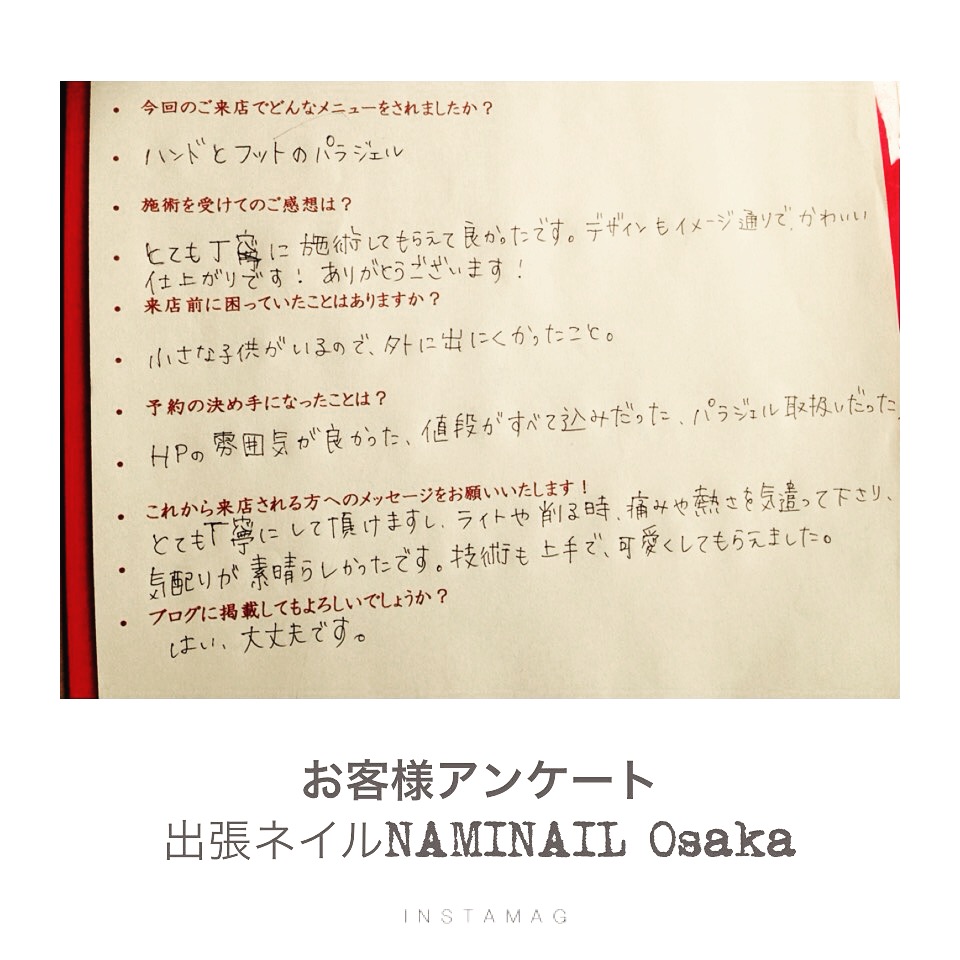 ・今回のご来店でどんなメニューをされましたか？
・ハンドとフットのパラジェル
・施術を受けてのご感想は？
・とても丁寧に施術してもらえて良かったです。デザインもイメージ通りで、かわいい
仕上がりです！ありがとうございます！
・来店前に困っていたことはありますか？
・小さな子供がいるので、外に出にくかったこと。
・予約の決め手になったことは？
・HPの雰囲気が良かった、値段がすべて込みだった、パラジェル取扱いだった。
・これから来店される方へのメッセージをお願いいたします！
とても丁寧にして頂けますし、ライトや削る時、痛みや熱さを気遣って下さり、
・気配りが素晴らしかったです。技術も上手で、可愛くしてもらえました。
・ブログに掲載してもよろしいでしょうか？
はい、大丈夫です。
お客様アンケート
出張ネイルNAMINAIL Osaka
INSTAMAG